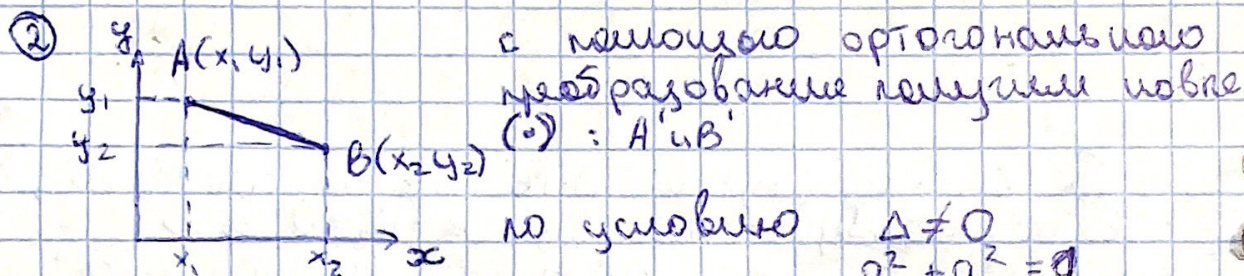 ②
y
A(x₁ y₁)
y₁
y₂
B(x₂ y₂)
x₁
x₂
x
с помощью ортогонального
преобразование получим новые
(•) : A' и B'
по условию Δ ≠ 0